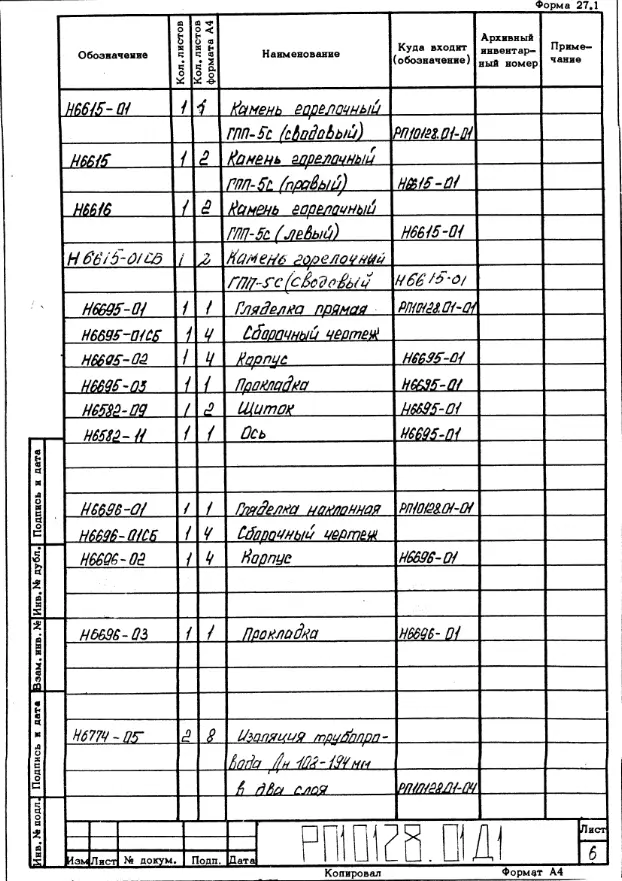 Форма 27.1
Обозначение Кол. листов Кол. листов формата А4 Наименование Куда входит (обозначение) Архивный инвентар-ный номер Приме-чание
Н6615-01 1 1 Камень горелочный
ГПП-5с (сводовый) РП10128.01-01
Н6615 1 2 Камень горелочный
ГПП-5с (правый) Н6615-01
Н6616 1 2 Камень горелочный
ГПП-5с (левый) Н6615-01
Н6615-01СБ 1 2 Камень горелочный
ГПП-5с (сводовый Н6615-01
Н6695-01 1 1 Гляделка прямая РП10128.01-01
Н6695-01СБ 1 4 Сборочный чертеж
Н6695-02 1 4 Корпус Н6695-01
Н6695-03 1 1 Прокладка Н6695-01
Н6582-09 1 2 Щиток Н6695-01
Н6582-11 1 1 Ось Н6695-01
Н6696-01 1 1 Гляделка наклонная РП10128.01-01
Н6696-01СБ 1 4 Сборочный чертеж
Н6696-02 1 4 Корпус Н6696-01
Н6696-03 1 1 Прокладка Н6696-01
Н6774-05 2 8 Изоляция трубопро-
вода Дн 108-194 мм
в два слоя РП10128.01-04
Инв. № подл. Подпись и дата Взам. инв. № Инв. № дубл. Подпись и дата
РП10128.01Д1
Лист
6
Изм Лист № докум. Подп. Дата
Копировал Формат А4